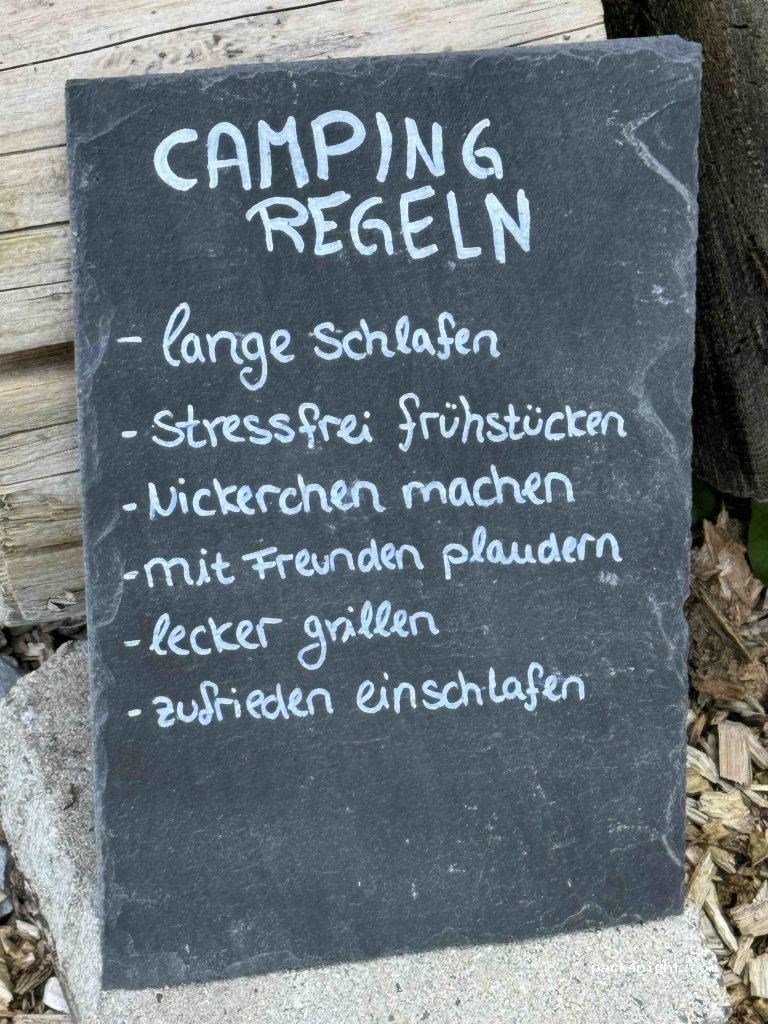 CAMPING
REGELN
- lange schlafen
- Stressfrei frühstücken
- Nickerchen machen
- mit Freunden plaudern
- lecker grillen
- zufrieden einschlafen
park4night.com